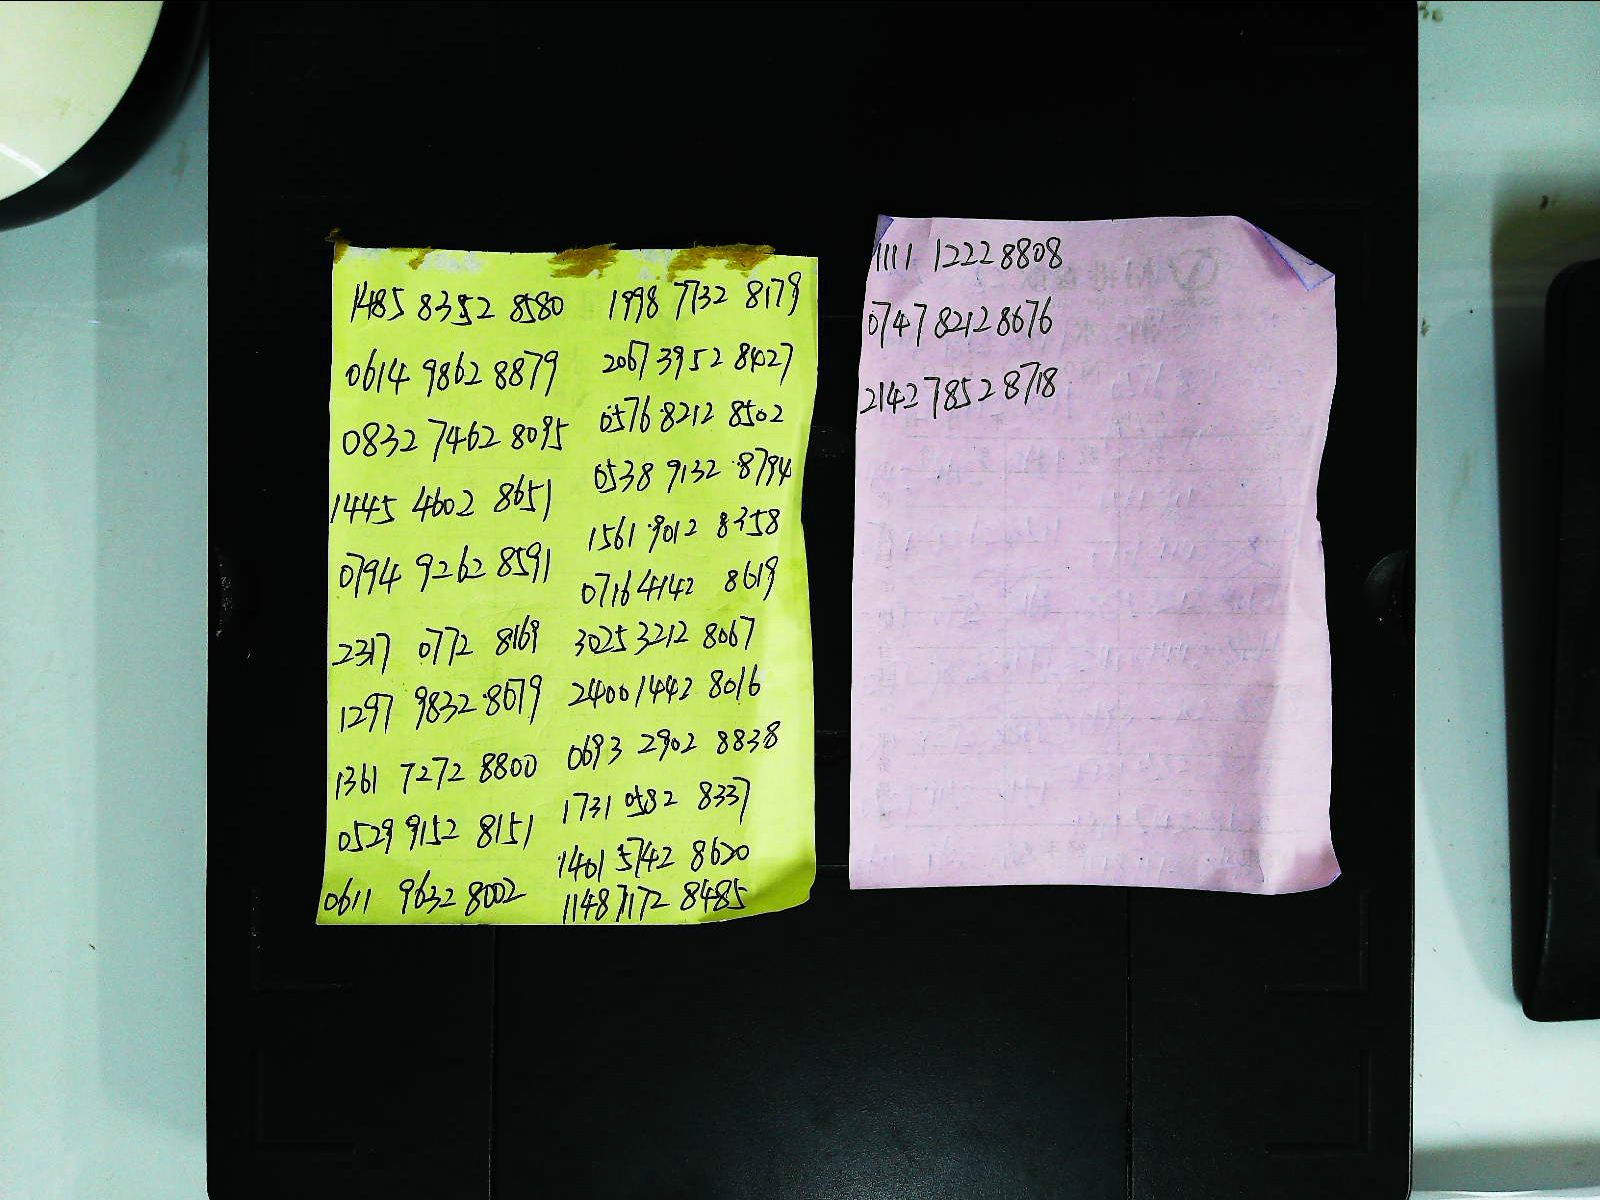 1485 8352 8580
0614 9862 8879
0832 7462 8095
1445 4602 8651
0794 9262 8591
2317 0772 8169
1297 9832 8679
1361 7272 8800
0529 9152 8151
0611 9632 8002
1998 7732 8179
2067 3952 8427
0576 8212 8502
0538 9132 8794
1561 9012 8358
0716 4142 8619
3025 3212 8067
2400 1442 8016
0693 2902 8838
1731 0582 8337
1401 5742 8620
1148 7172 8485
1111 1222 8808
0747 8212 8676
2142 7852 8718